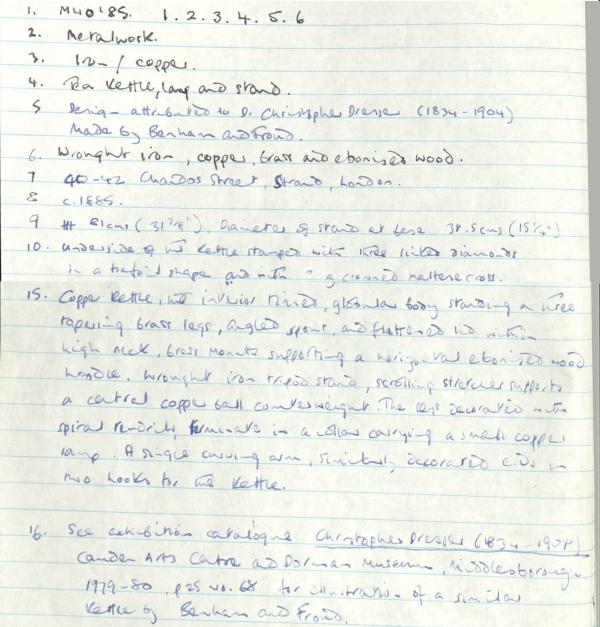 1. M40'85. 1. 2. 3. 4. 5. 6
2. Metalwork.
3. Iron / copper.
4. Tea Kettle, lamp and stand.
5 Design attributed to Dr. Christopher Dresser (1834-1904)
Made by Benham and Froud.
6. Wrought iron, copper, brass and ebonised wood.
7 40-42 Chandos Street, Strand, London.
8 c.1885.
9 H 81cms (31 7/8"). Diameter of stand at base 38.5cms (15 1/4")
10. Underside of the Kettle stamped with three linked diamonds
in a trefoil shape and with a crowned maltese cross.
15. Copper Kettle, the interior tinned, globular body standing on three
tapering brass legs, angled spout, and flattened lid within
high neck, brass mounts supporting a horizontal ebonised wood
handle. Wrought iron tripod stand, scrolling stretcher supports
a central copper ball counterweight. The legs decorated with
spiral tendrils, terminate in a collar carrying a small copper
lamp. A single curving arm, similarly decorated ends in
two hooks for the Kettle.
16. See exhibition catalogue Christopher Dresser (1834-1904)
Camden Arts Centre and Dorman Museum, Middlesborough
1979-80. p25 no. 68 for illustration of a similar
Kettle by Benham and Froud.